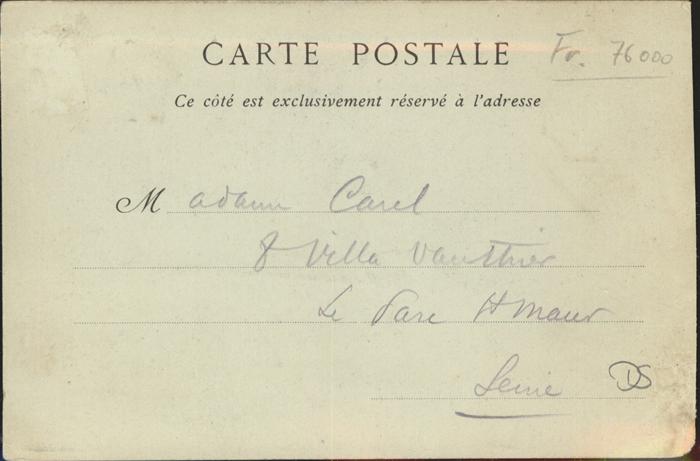 CARTE POSTALE
Fr. 76000
Ce côté est exclusivement réservé à l'adresse
Madame Carel
8 Villa Vauthier
Le Parc St maur
Seine
DS